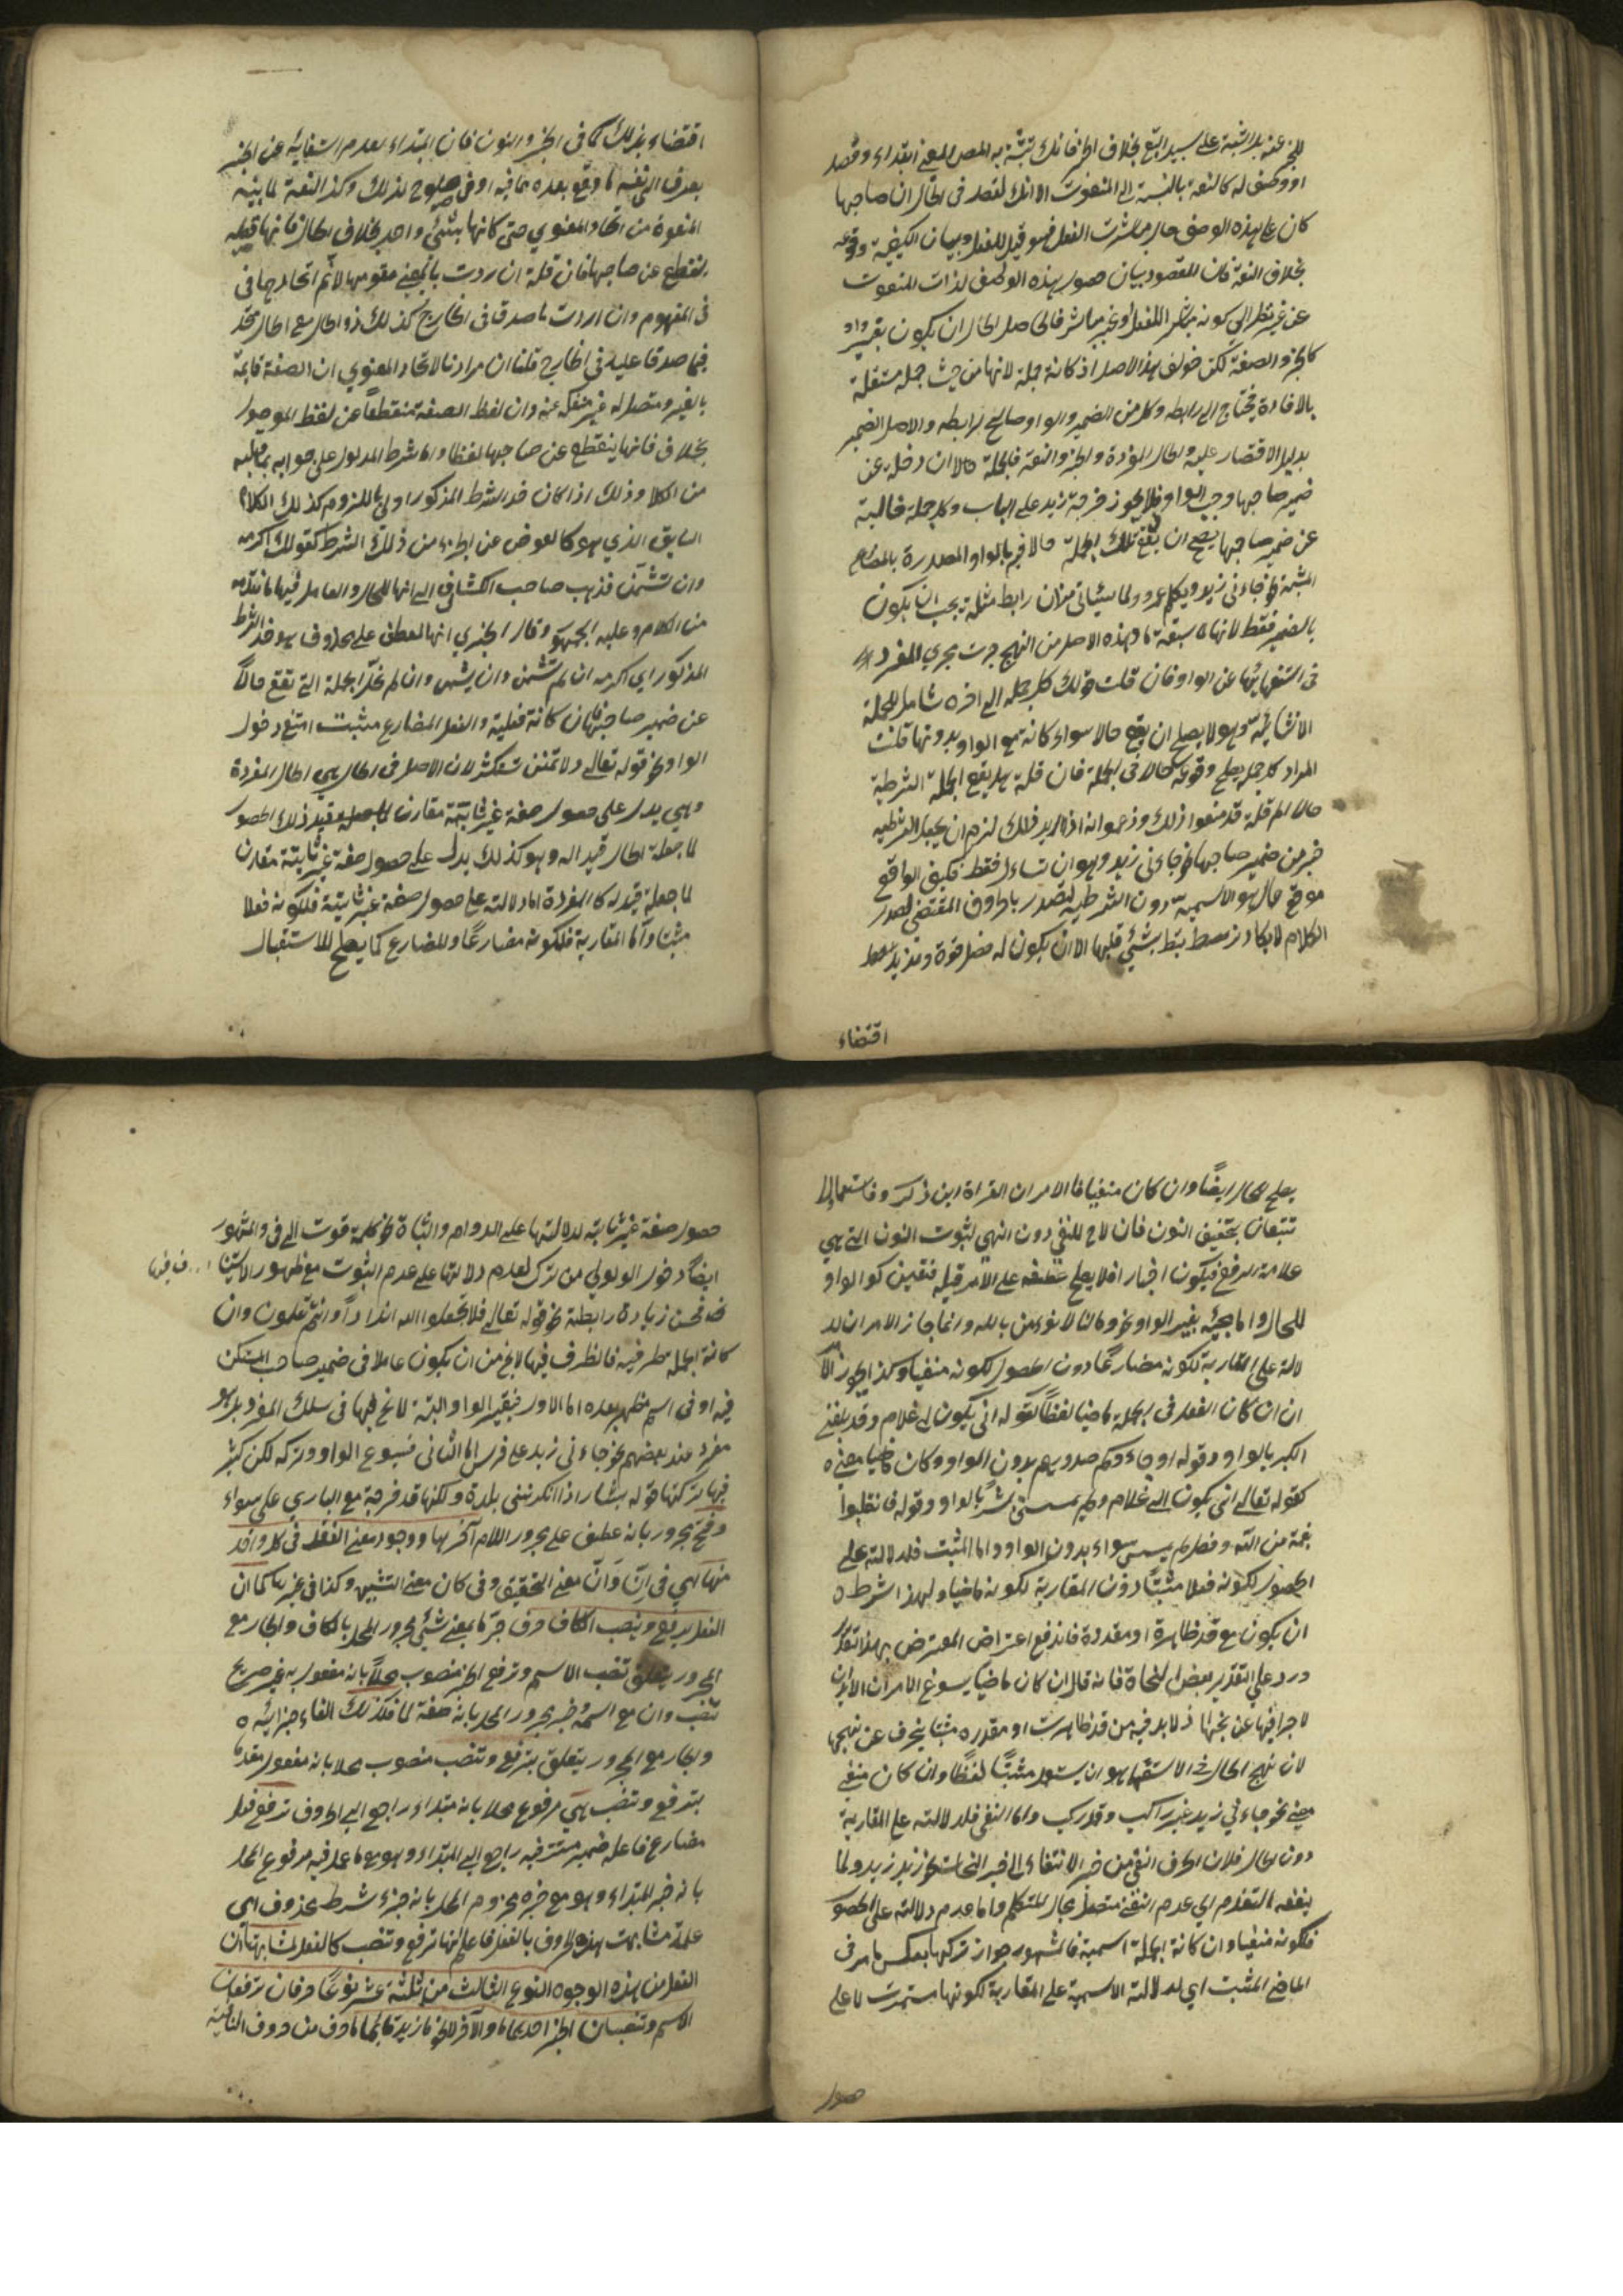 للخبر عنه بل الثبته على سبيل التبع بخلاف الخبر فانك تثبته به المعنى ابتداء وقصد
او وصف له كالنعت بالنسبة الى المنعوت الا انك تقصد فى الحال ان صاحبها
كان على هذه الوصف حال مباشرت الفعل فهو قيد للفعل وبيان الكيفية وقوعه
بخلاف النعت فان المقصود بيان حصول هذه الوصف لذات المنعوت
عن غير نظر الى كونه مباشر للفعل او غير مباشر فالحاصل الحال ان يكون بغير واو
كالخبر والصفة لكن خولف هذا الاصل اذ كانة جملة لانها من حيث جملة مستقلة
بالافادة تحتاج الى رابطه وكل من الضمير والواو صالح لرابطه والاصل الضمير
بدليل الاقتصار عليه والحال المفردة والخبر والنعت فالجملة حالا ان دخلة عن
ضمير صاحبها وجب الواو فلا يجوز خرجة زيد على الباب وكل جملة خالية
عن ضمير صاحبها يصح ان تقع تلك الجملة حالا فيه بالواو المصدرة بالمضارع
المثبة نحو جاءنى زيد ويكلم عمرو ولما سيأتى من ان رابط مثله يجب ان يكون
بالضمير فقط لانها
فى استغنائها عن الواو فان قلت قولك كل جملة الى اخره شامل للجملة
الانشائية وهو لا يصلح ان يقع حالا سواء كانة مع الواو وبدونها قلنت
المراد كل جملة يصلح وقوعها حالا فى الجملة فان قلة هل يقع الجملة الشرطية
حالا ام لا قلة قد منعوا ذلك وزعموا انه اذا اريد ذلك لزم ان يجعل الشرطية
خبر من ضمير صاحبها نحو جاءنى زيد وهو ان تساءل فقط فكيف الواقع
موقع حال هو الاسمية دون الشرطية لتصدر بالحروف المقتضى لصدر
الكلام لا يكاد ترتبط بشئ قبلها الا ان يكون له فضل قوة ومزيد
اقتضاء
اقتضاء بذلك كما فى الخبر والنون فان المبتداء بعدم استغنائه عن الخبر
يصرف الى نفسه ما وقع بعده مما فيه ادنى صلوح لذلك وكذا النعة لما بينه
المنعوة من اتحاد المعنوي حتى كانها بشئ واحد بخلاف الحال فانها
تنقطع عن صاحبها فان قلة ان ردت بالمعنى مفهومها لا ثم اتحادهما فى
فى المفهوم وان اردت ما صدقا فى الخارج كذلك ذو الحال مع الحال متحد
فيما صدقا عليه فى الخارج قلنا ان مرادنا الاتحاد المعنوي ان الصفة قايمة
بالغير ومتصل له غير منفكة عنه وان لفظ الصفة منقطعا عن لفظ الموصول
بخلاف فانها ينقطع عن صاحبها لفظا واما شرط المدلول على جوابه بما قبله
من الكلام وذلك اذا كان ضد الشرط المذكور اولى باللزوم كذلك الكلام
السابق الذي هو كالعوض عن الجزاء من ذلك الشرط كقولك اكرمه
وان تشتمنى فذهب صاحب الكشاف الى انها للحال والعامل فيها ما تقدمه
من الكلام وعليه الجمهور وقال الجنزي انها للعطف على محذوف هو ضد الشرط
المذكور اي اكرمه ان لم تشتمنى وان يشتمنى وان لم تخل الجملة التى تقع حالا
عن ضمير صاحبها فان كانة فعلية والفعل المضارع مثبت امتنع دخول
الواو نحو قوله تعالى ولا تمنن تستكثر لان الاصل فى الحال هي الحال المفردة
وهي يدل على حصول صفة غير ثابتة مقارن لما جعلة قيد ذلك الحصول
لما جعلة الحال قيد اله وهو كذلك يدل على حصول صفة غير ثابتة مقارن
لما جعلة قيد له كالمفردة اما دلالته على حصول صفة غير ثابتة فلكونه فعلا
مثبتا واما المقاربة فلكونه مضارعا والمضارع كما يصلح للاستقبال
يصلح للحال ايضا وان كان منفيا فالامران القراة ابن ذكر وفاستقما ولا
تتبعان بتخفيف النون فان لا للنفي دون النهي لثبوت النون التى هي
علامة الرفع فيكون اخبارا فلا يصلح عطفه على الامر قبله فتعين كو الواو
للحال واما مجيئه بغير الواو نحو ومالنا لا نؤمن بالله وانما جاز الامران لد
لالة على المقاربة لكونه مضارعا دون الحصول لكونه منفيا وكذا يجوز الامر
ان ان كان الفعل فى الجملة ماضيا لفظا كقوله انى يكون لى غلام وقد بلغنى
الكبر بالواو وقوله او جاءوكم حصرت صدورهم بدون الواو وكان ماضيا معنى
كقوله تعالى انى يكون الى غلام ولم يمسسنى بشر بالواو وقوله فانقلبوا
بنعمة من الله وفضل لم يمسسهم سواء بدون الواو واما المثبت فلدلالته على
الحصول لكونه فعلا مثبتا دون المقاربة لكونه ماضيا ولهذا شرط
ان يكون مع قد ظاهرة او مقدرة فاندفع اعتراض المعترض بهذا تقدير
ورد على التقدير بعض النحاة فانه قال ان كان ماضيا يسوغ الامران
لاجرافيها عن نجها اذ لا بد فيه من قد ظاهرت او مقدره مثبتا ينحرف عن نهجها
لان نهج الحال فى الاستعمال هو ان يستعمل مثبتا لفظا وان كان منفى
معنى نحو جاءني زيد غير راكب وقد ركب واما النفى فلدلالته على المقاربة
دون الحال فلان الحرف النفى من خبر الانتفاء الى خبر النحاة نحو زيد ولما
ينفعه التقدم اي عدم النفع متصل بحال المتكلم واما عدم دلالته على الحصول
فلكونه منفيا وان كانة الجملة اسمية فالمشهور جواز تركها بعكس ما مر فى
الماضى المثبت اي لدلالته الاسمية على المقاربة لكونها مستمرت لا على
حصول
حصول صفة غير ثابتة لدلالتها على الدوام والثبات نحو كلمة فوت الى فى والمشهور
ايضا دخول الواو اولى من ترك لعدم دلالتها على عدم الثبوت مع ظهور الاستينا ... ف فيها
فحسن زيادة رابطة نحو قوله تعالى فلا تجعلوا لله اندادا وانتم تعلمون وان
كانة الجملة ظرفية فالظرف فيها لا يخ من ان يكون عاملا فى ضمير صاحب المستكن
فيه او فى اسم مظهر بعده اما الاول فبغير الواو البتة لا يخ طيها فى سلك المفرد بل هو
مفرد عند بعضهم نحو جاءنى زيد على فرس واما الثانى فيسوغ الواو وتركه لكن كثر
فيها تركها قوله بشار اذا انكرتنى بلدة ونكرتها قد خرجة مع البازي على سواء
وفتح مجرور بانه عطف على مجرور اللام آخرها ووجود معنى الفعل فى كل واحد
منها اي فى ان وأن معنى التحقيق وفى كان معنى التشبيه وكذا فى غيرها كما ان
الفعل يرفع وينصب الكاف حرف جر ما بمعنى شئ مجرور المحل بالكاف والجار مع
المجرور يتعلق تنصب الاسم وترفع الخبر منصوب محلا بانه مفعول به غير صريح
تنصب وان مع اسمه وخبره مجرور المحل بانه صفة لما فلذلك الفاء جزائيه
والجار مع المجرور يتعلق بترفع وتنصب منصوب محلا بانه مفعول مقدم
بترفع وتنصب هي مرفوع محلا بانه مبتداء راجع الى الحروف ترفع فعل
مضارع فاعله ضمير مستتر فيه راجع الى المبتداء وهو مع ما عمل فيه مرفوع المحل
بانه خبر المبتداء وهو مع خبره مجزوم المحل بانه جزاء شرط محذوف اي
علة مشابهت هذه الحروف بالفعل فاعلم انها ترفع وتنصب كالفعل لمشابهتها ان
الفعل من هذه الوجوه النوع الثالث من ثلثة عشر نوعا حرفان ترفعان
الاسم وتنصبان الخبر احديهما ما والآخر لا نحو ما زيد قائما ما حرف من حروف النافية